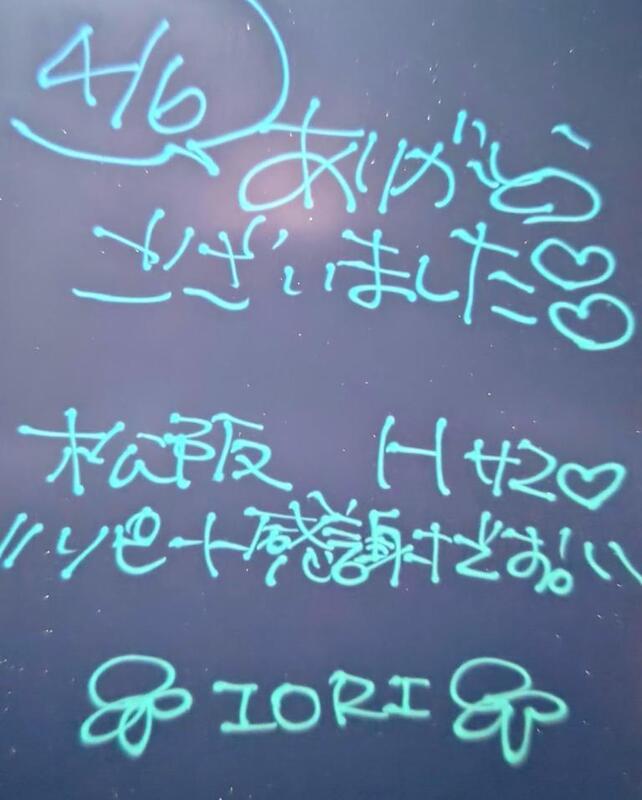 4/6
ありがとう
ございました♡♡
松阪 H ♡
リピート感謝
IORI